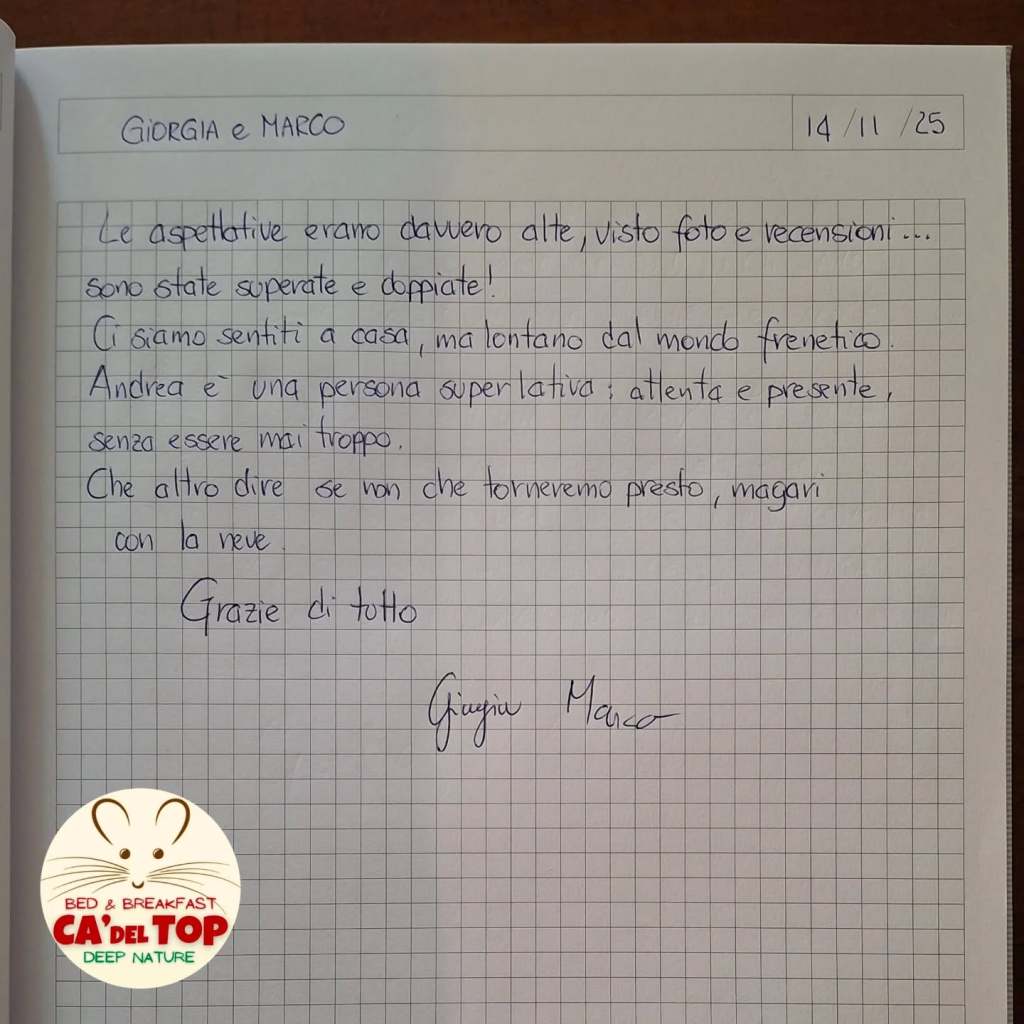 GiORGIA e MARCO
14/11/25
Le aspettative erano davvero alte, visto foto e recensioni...
sono state superate e doppiate!
Ci siamo sentiti a casa, ma lontano dal mondo frenetico.
Andrea è una persona superlativa: attenta e presente,
senza essere mai troppo.
Che altro dire se non che torneremo presto, magari
con la neve.
Grazie di tutto
Giorgia Marco
BED & BREAKFAST
CA' DEL TOP
DEEP NATURE